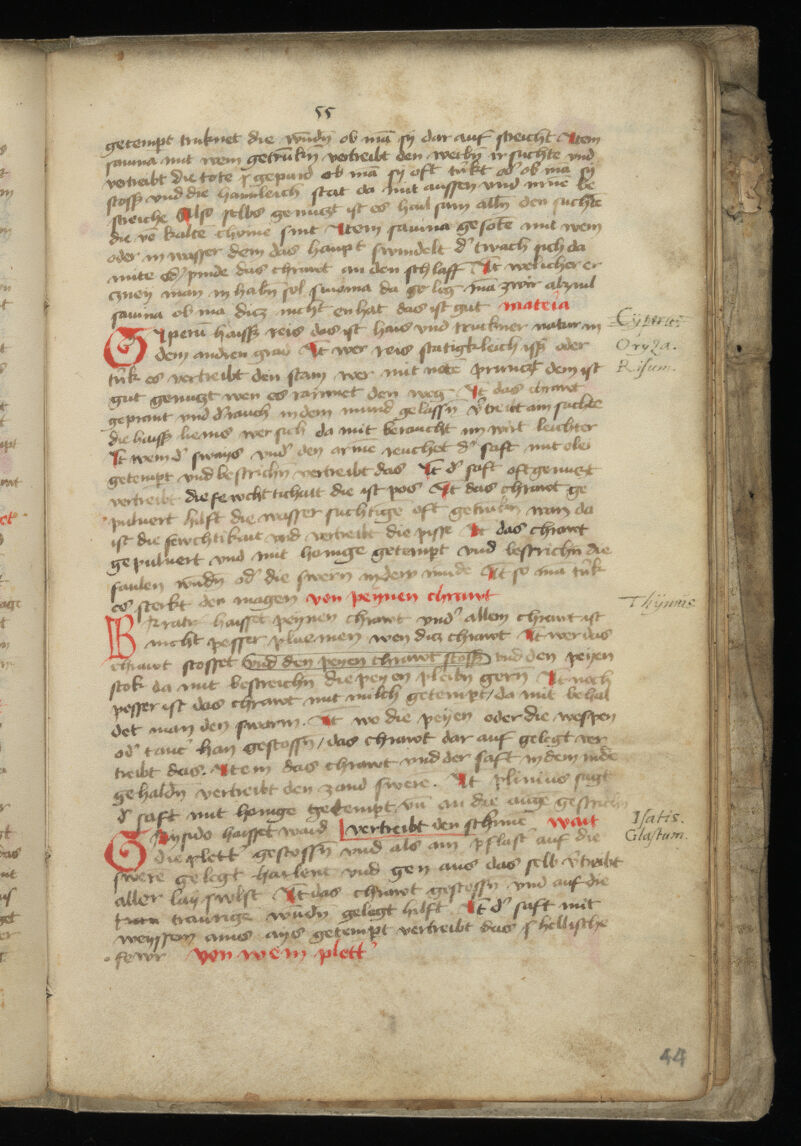 55
getempt truknet die wūdn ob mā sy dar auf streicht Item
sauina mit wein getrūkn vertreibt den weibn ir suchte vnd
vertreibt die tote gepurd ob mā sy oft trīkt od ob mā sy
stoss vnd die haimleich stat da mit aussen vnd inne be
streiche Also selbs genuczt ist es hail sam alln den suchtē
die vō kalte chome sint Item sauina gesotē mit wein
oder in wasser dem das haupt swindelt d twach sich da
mite od pinde das chrawt an den schlaff It welicher er
cznei man in habn sol sinoma da zwir alzuil
sauina ob mā dicz nicht en hat das ist gut mateia
Ciperū haisset reis das ist hais vnd truckner natur in
dem andren grad It wer reis statigkleich isst oder
trīk es vertreibt den stain wer mit note prunczt dem ist
gut genuczt wen es raumet den weg It das chrawt
geprant vnd d rauch in dem mund gelassn vtreibt ain suchte
die haisst lienis wer sich da mit beraucht im wirt leichter
It wem d swais vnd den armē reuchet d saft mit olei
getempt vnd bestrichn vertreibt das It d saft oft genuczt
vertreibt die fewchtichait die ist pos It das chrawt ge
puluert hilft die wasser suchtige oft getrukn wan da
ist die fewchtikait vnd vertreibt die pisse It das chrawt
gepuluert vnd mit honige getempt vnd bestrichn die
faulen wūdn od die swern in dem mūde It so mā trīk
es sterkt den magen von peynen chrawt
Cyperus
Oryza.
Risum.
Barrato haisset peynen chrawt vnd allem chrawt ist
nicht pesser pluemen wen dicz chrawt It wer das
chrawt stosset vnd den peyen chrawt stoss vnd den peyen
stok da mit bestreichn die peyen pleibn gern It noch
pesser ist das chrawt mit milch getempt / da mit behal
det man den swarm. It wo die peyen oder die wespen
od taue han gestossn / das chrawt dar auf gelegt ver
treibt das. Item das chrawt vnd der saft in dem mūde
gehaldn vertreibt den zand swere. It plinius sagt
d saft mit honige getempt vn an die auge gestrichn
Thymus
vertreibt den schime wait
Gaysido haisset waid
die plett gestossn vnd als ain pflast auf die
swere gelegt hailent vnd gen aus das selb vtreibt
aller lay swlst It das chrawt gestossn vnd auf die
traurige wūdn gelegt hilft It d saft mit
weyssem ains ays getempt vertreibt das hellische
fewr von wein plett
Isatis.
Glastum.
44